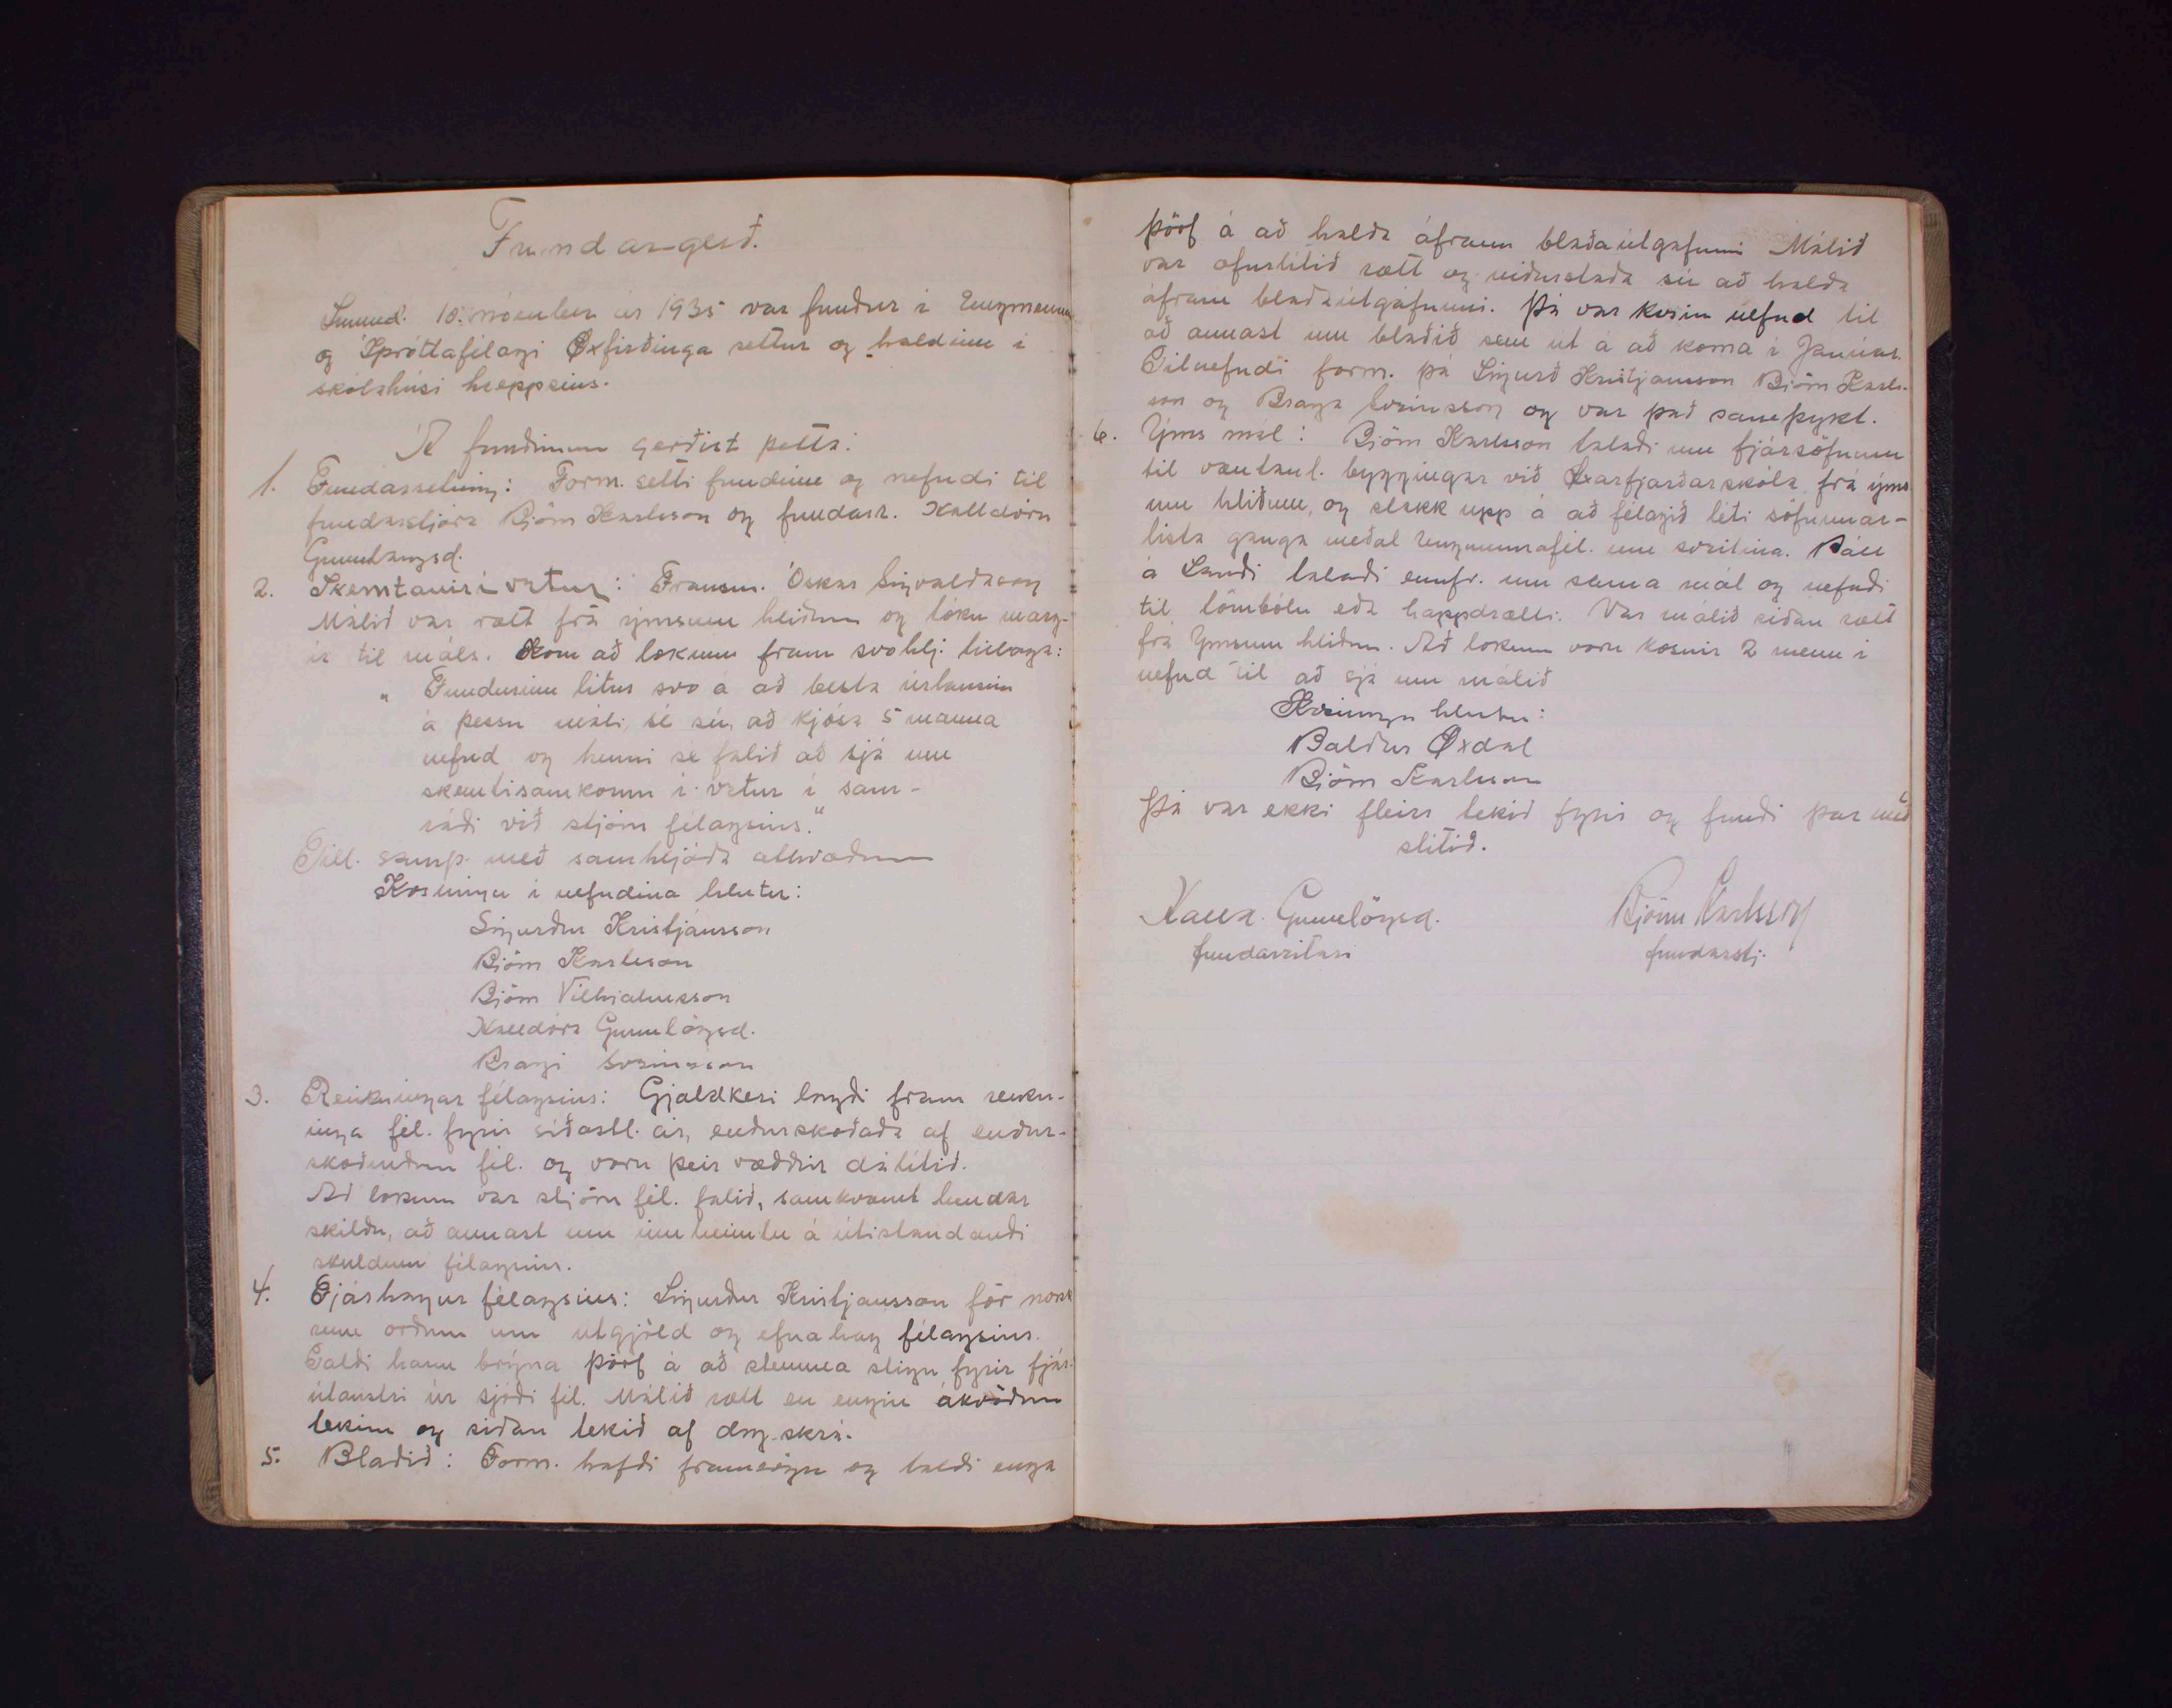 Fundargerð.
Sunnud. 10. nóvember ár 1935 var fundur í Ungmenna
og Íþróttafélagi Öxfirðinga settur og haldinn í
skólahúsi hreppsins.
Á fundinum gerðist þetta:
1. Fundarsetning: Form. setti fundinn og nefndi til
fundarstjóra Björn Karlsson og fundarr. Halldóru
Gunnlaugsd.
2. Skemtanir í vetur: Framsm. Óskar Sigvaldason
Málið var rætt frá ýmsum hliðum og tóku marg-
ir til máls. Kom að lokum fram svohlj. tillaga:
„Fundurinn lítur svo á að besta úrlausnin
á þessu máli, sé sú, að kjósa 5 manna
nefnd og henni sé falið að sjá um
skemtisamkomu í vetur í sam-
ráði við stjórn félagsins."
Till. samþ. með samhljóða atkvæðum
Kosningu í nefndina hlutu:
Sigurður Kristjánsson
Björn Karlsson
Björn Vilhjalmsson
Halldóra Gunnlögsd.
Bragi Sveinsson
3. Reikningar félagsins: Gjaldkeri lagði fram reikn-
inga fél. fyrir síðastl. ár, endurskoðaða af endur-
skoðendum fél. og voru þeir ræddir dálítið.
Að lokum var stjórn fél. falið, samkvæmt
skildu, að annast um innheimtu á útistandandi
skuldum félagsins.
4. Fjárhagur félagsins: Sigurður Kristjansson fór nokk
rum orðum um utgjöld og efnahag félagsins.
Taldi hann brýna þörf á að stemma stigu fyrir fjár-
útaustri úr sjóði fél. Málið rætt en engin ákvöðun
tekin og siðan tekið af dagskrá.
5. Blaðið: Form. hafði framsögu og taldi enga
þörf á að halda áfram blaðaútgáfunni Málið
var ofurlítið rætt og niðurstaða sú að halda
áfram blaðaútgáfunni. Þá var kosin nefnd til
að annast um blaðið sem út á að koma í Janúar.
Tilnefndi form. þá Sigurð Kristjansson Björn Karls-
son og Braga Sveinsson og var það samþykt.
6. Ýms mál: Björn Karlsson talaði um fjársöfnun
til væntanl. byggingar við Öxarfjarðarskóla frá ýms
um hliðum, og stakk upp á að félagið léti söfnunar-
lista ganga meðal ungmennafél. um sveitina. Páll
á Landi talaði ennfr. um sama mál og nefndi
til tombólu eða happdrætti. Var málið síðan rætt
frá ýmsum hliðum. Að lokum voru kosnir 2 menn í
nefnd til að sjá um málið
Kosningu hlutu:
Baldur Öxdal
Björn Karlsson
Þá var ekki fleira tekið fyrir og fundi þar með
slitið.
Halld. Gunnlögsd. Björn Karlsson
fundarritari fundarstj.